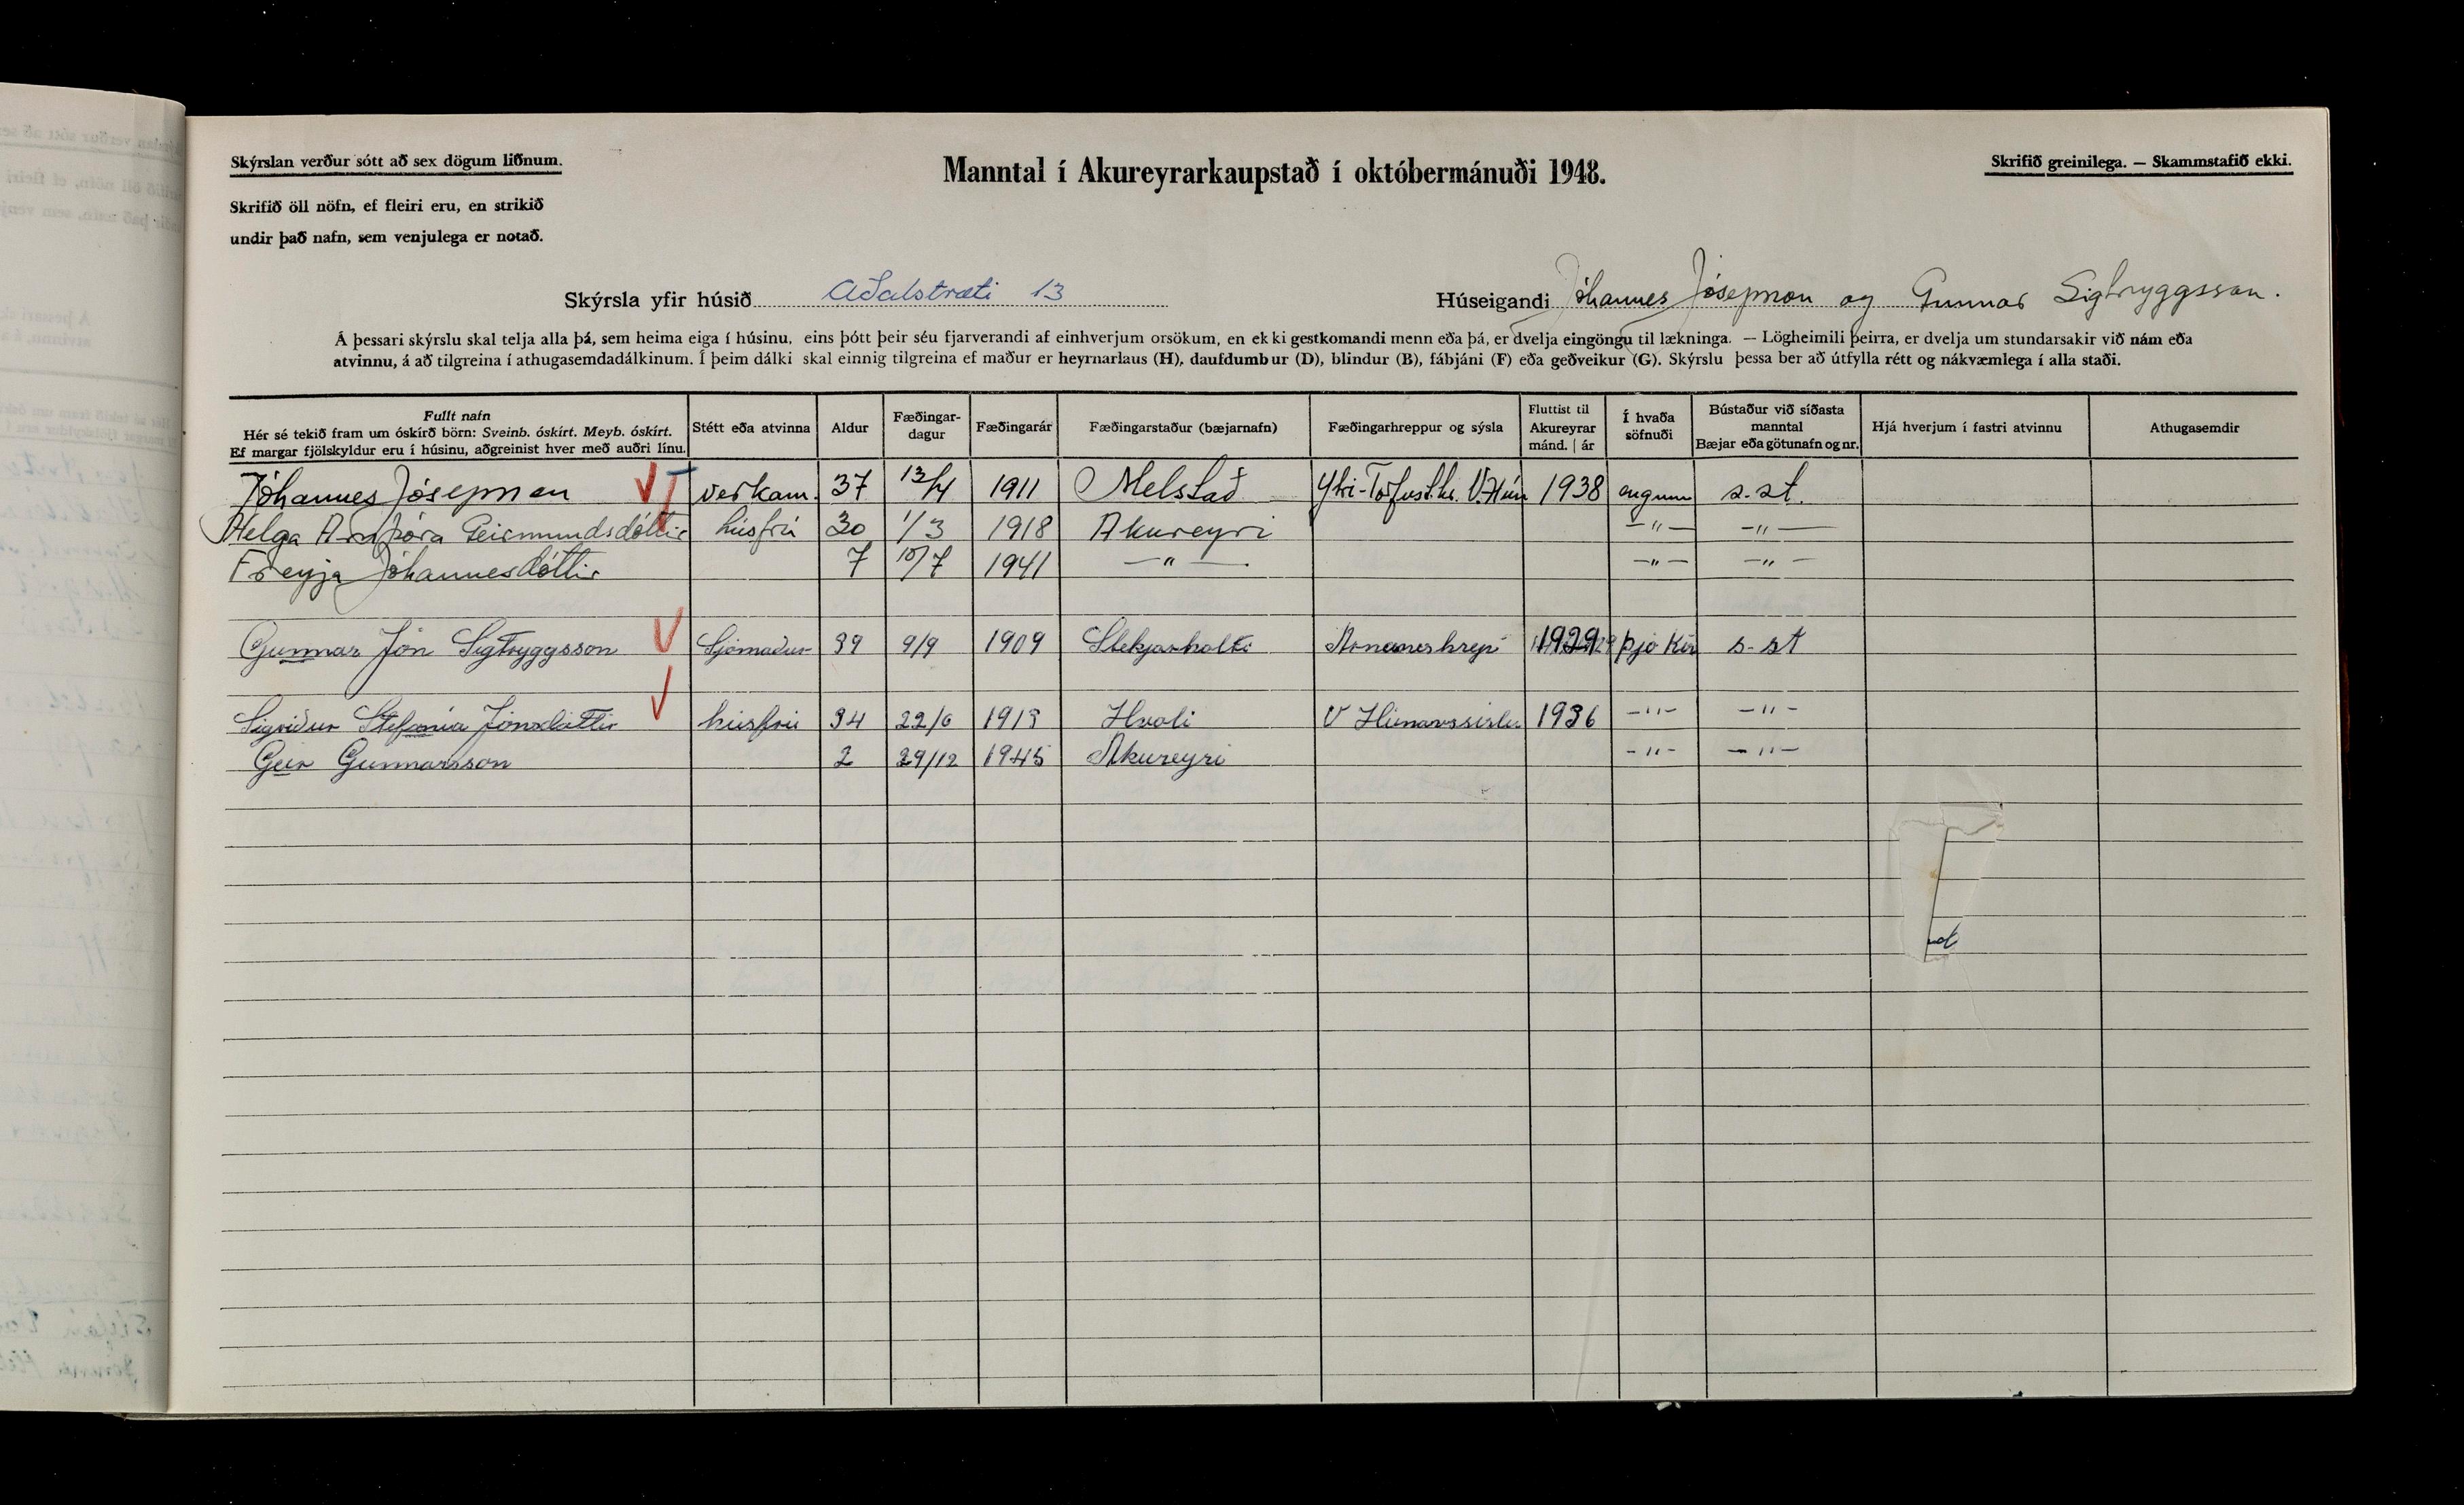 Skýrslan verður sótt að sex dögum liðnum.
Manntal í Akureyrarkaupstað í októbermánuði 1948.
Skrifið greinilega. — Skammstafið ekki.
Skrifið öll nöfn, ef fleiri eru, en strikið
undir það nafn, sem venjulega er notað.
Skýrsla yfir húsið Aðalstræti 13
Húseigandi Jóhannes Jósepsson og Gunnar Sigtryggsson.
Á þessari skýrslu skal telja alla þá, sem heima eiga í húsinu, eins þótt þeir séu fjarverandi af einhverjum orsökum, en ekki gestkomandi menn eða þá, er dvelja eingöngu til lækninga. — Lögheimili þeirra, er dvelja um stundarsakir við nám eða
atvinnu, á að tilgreina í athugasemdadálkinum. Í þeim dálki skal einnig tilgreina ef maður er heyrnarlaus (H), daufdumbur (D), blindur (B), fábjáni (F) eða geðveikur (G). Skýrslu þessa ber að útfylla rétt og nákvæmlega í alla staði.
Fullt nafn
Hér sé tekið fram um óskírð börn: Sveinb. óskírt. Meyb. óskírt.
Ef margar fjölskyldur eru í húsinu, aðgreinist hver með auðri línu.
Stétt eða atvinna
Aldur
Fæðingar-
dagur
Fæðingarár
Fæðingarstaður (bæjarnafn)
Fæðingarhreppur og sýsla
Fluttist til
Akureyrar
mánd. | ár
Í hvaða
söfnuði
Bústaður við síðasta
manntal
Bæjar eða götunafn og nr.
Hjá hverjum í fastri atvinnu
Athugasemdir
Jóhannes Jósepsson verkam. 37 13/4 1911 Melstað Ytri-Torfust.hr. V.Hún 1938 engum s. st.
Helga Arnþóra Geirmundsdóttir húsfrú 30 1/3 1918 Akureyri —"— —"—
Freyja Jóhannesdóttir 7 10/7 1941 —"— —"— —"—
Gunnar Jón Sigtryggsson Sjómaður 39 9/9 1909 Stekjarholti Arnaneshrepi 1929 Þjó Kir s. st
Sigriður Stefanía Jónsdóttir húsfrú 34 22/6 1913 Hvoli V Húnavssislu 1936 —"— —"—
Geir Gunnarsson 2 29/12 1945 Akureyri —"— —"—